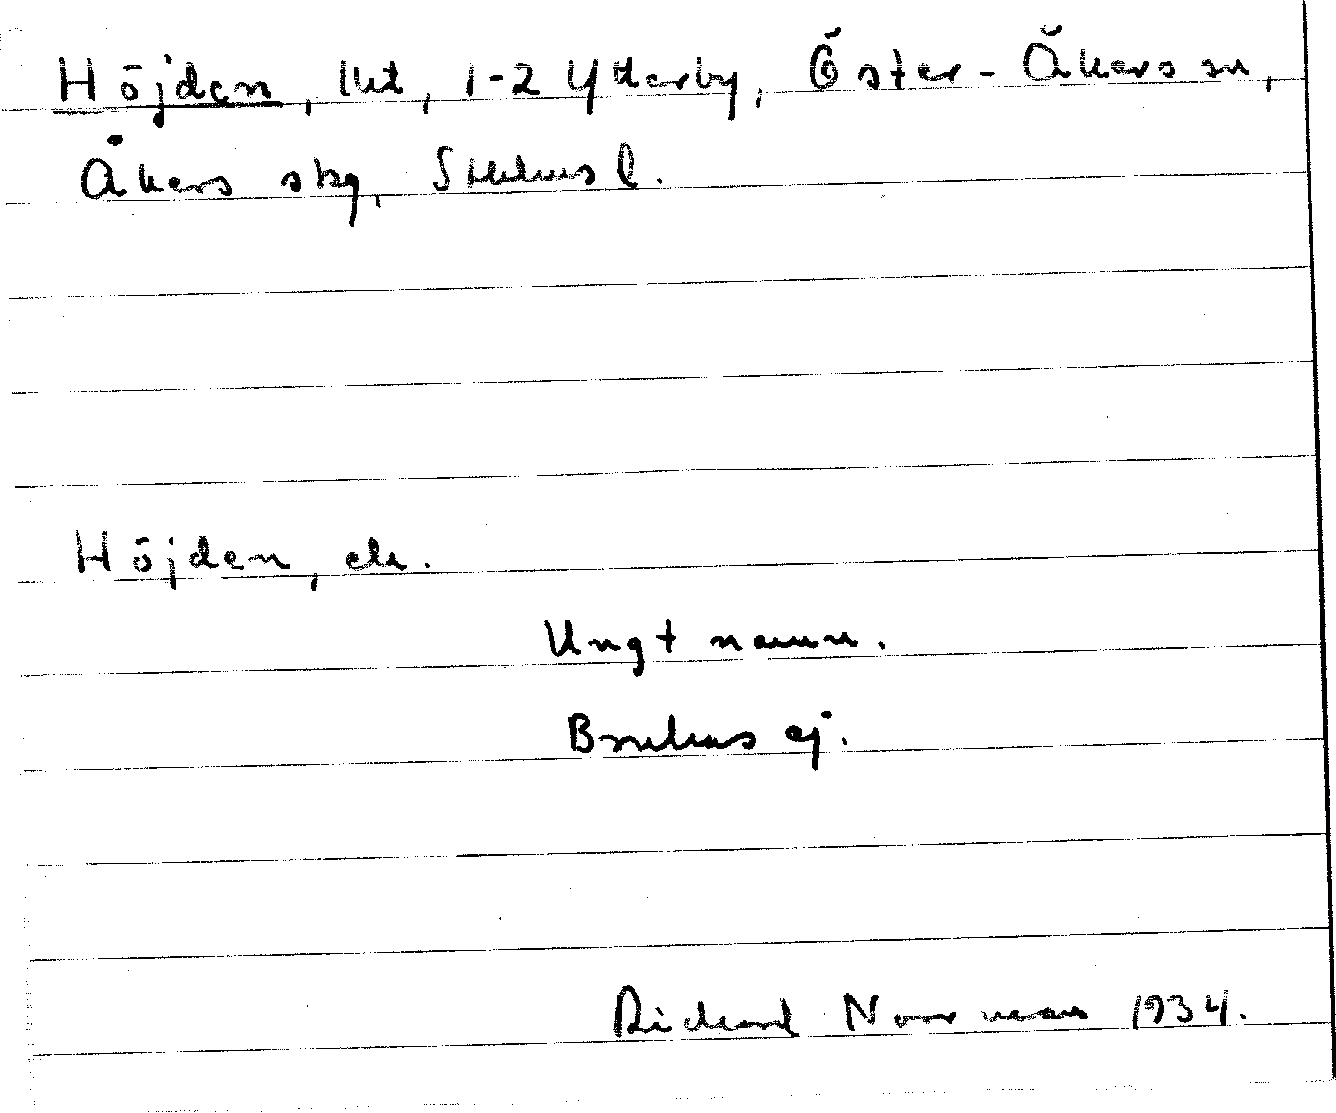 Höjden, lht, 1-2 Ytterby, Öster-Åkers sn,
Åkers skg, Sthlms l.
Höjden, ek.
Ungt namn.
Brukas ej.
Rickard Norrman 1934.